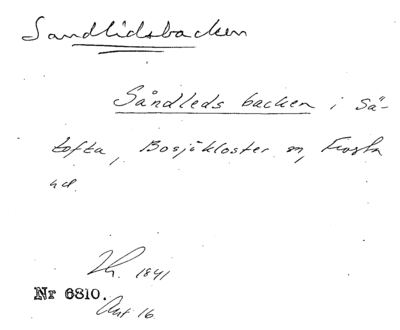 Sandlidsbacken
Såndleds backen i Sä-
tofta, Bosjökloster sn, Frosta
hd.
Lh. 1841
Nr 6810.
Akt 16